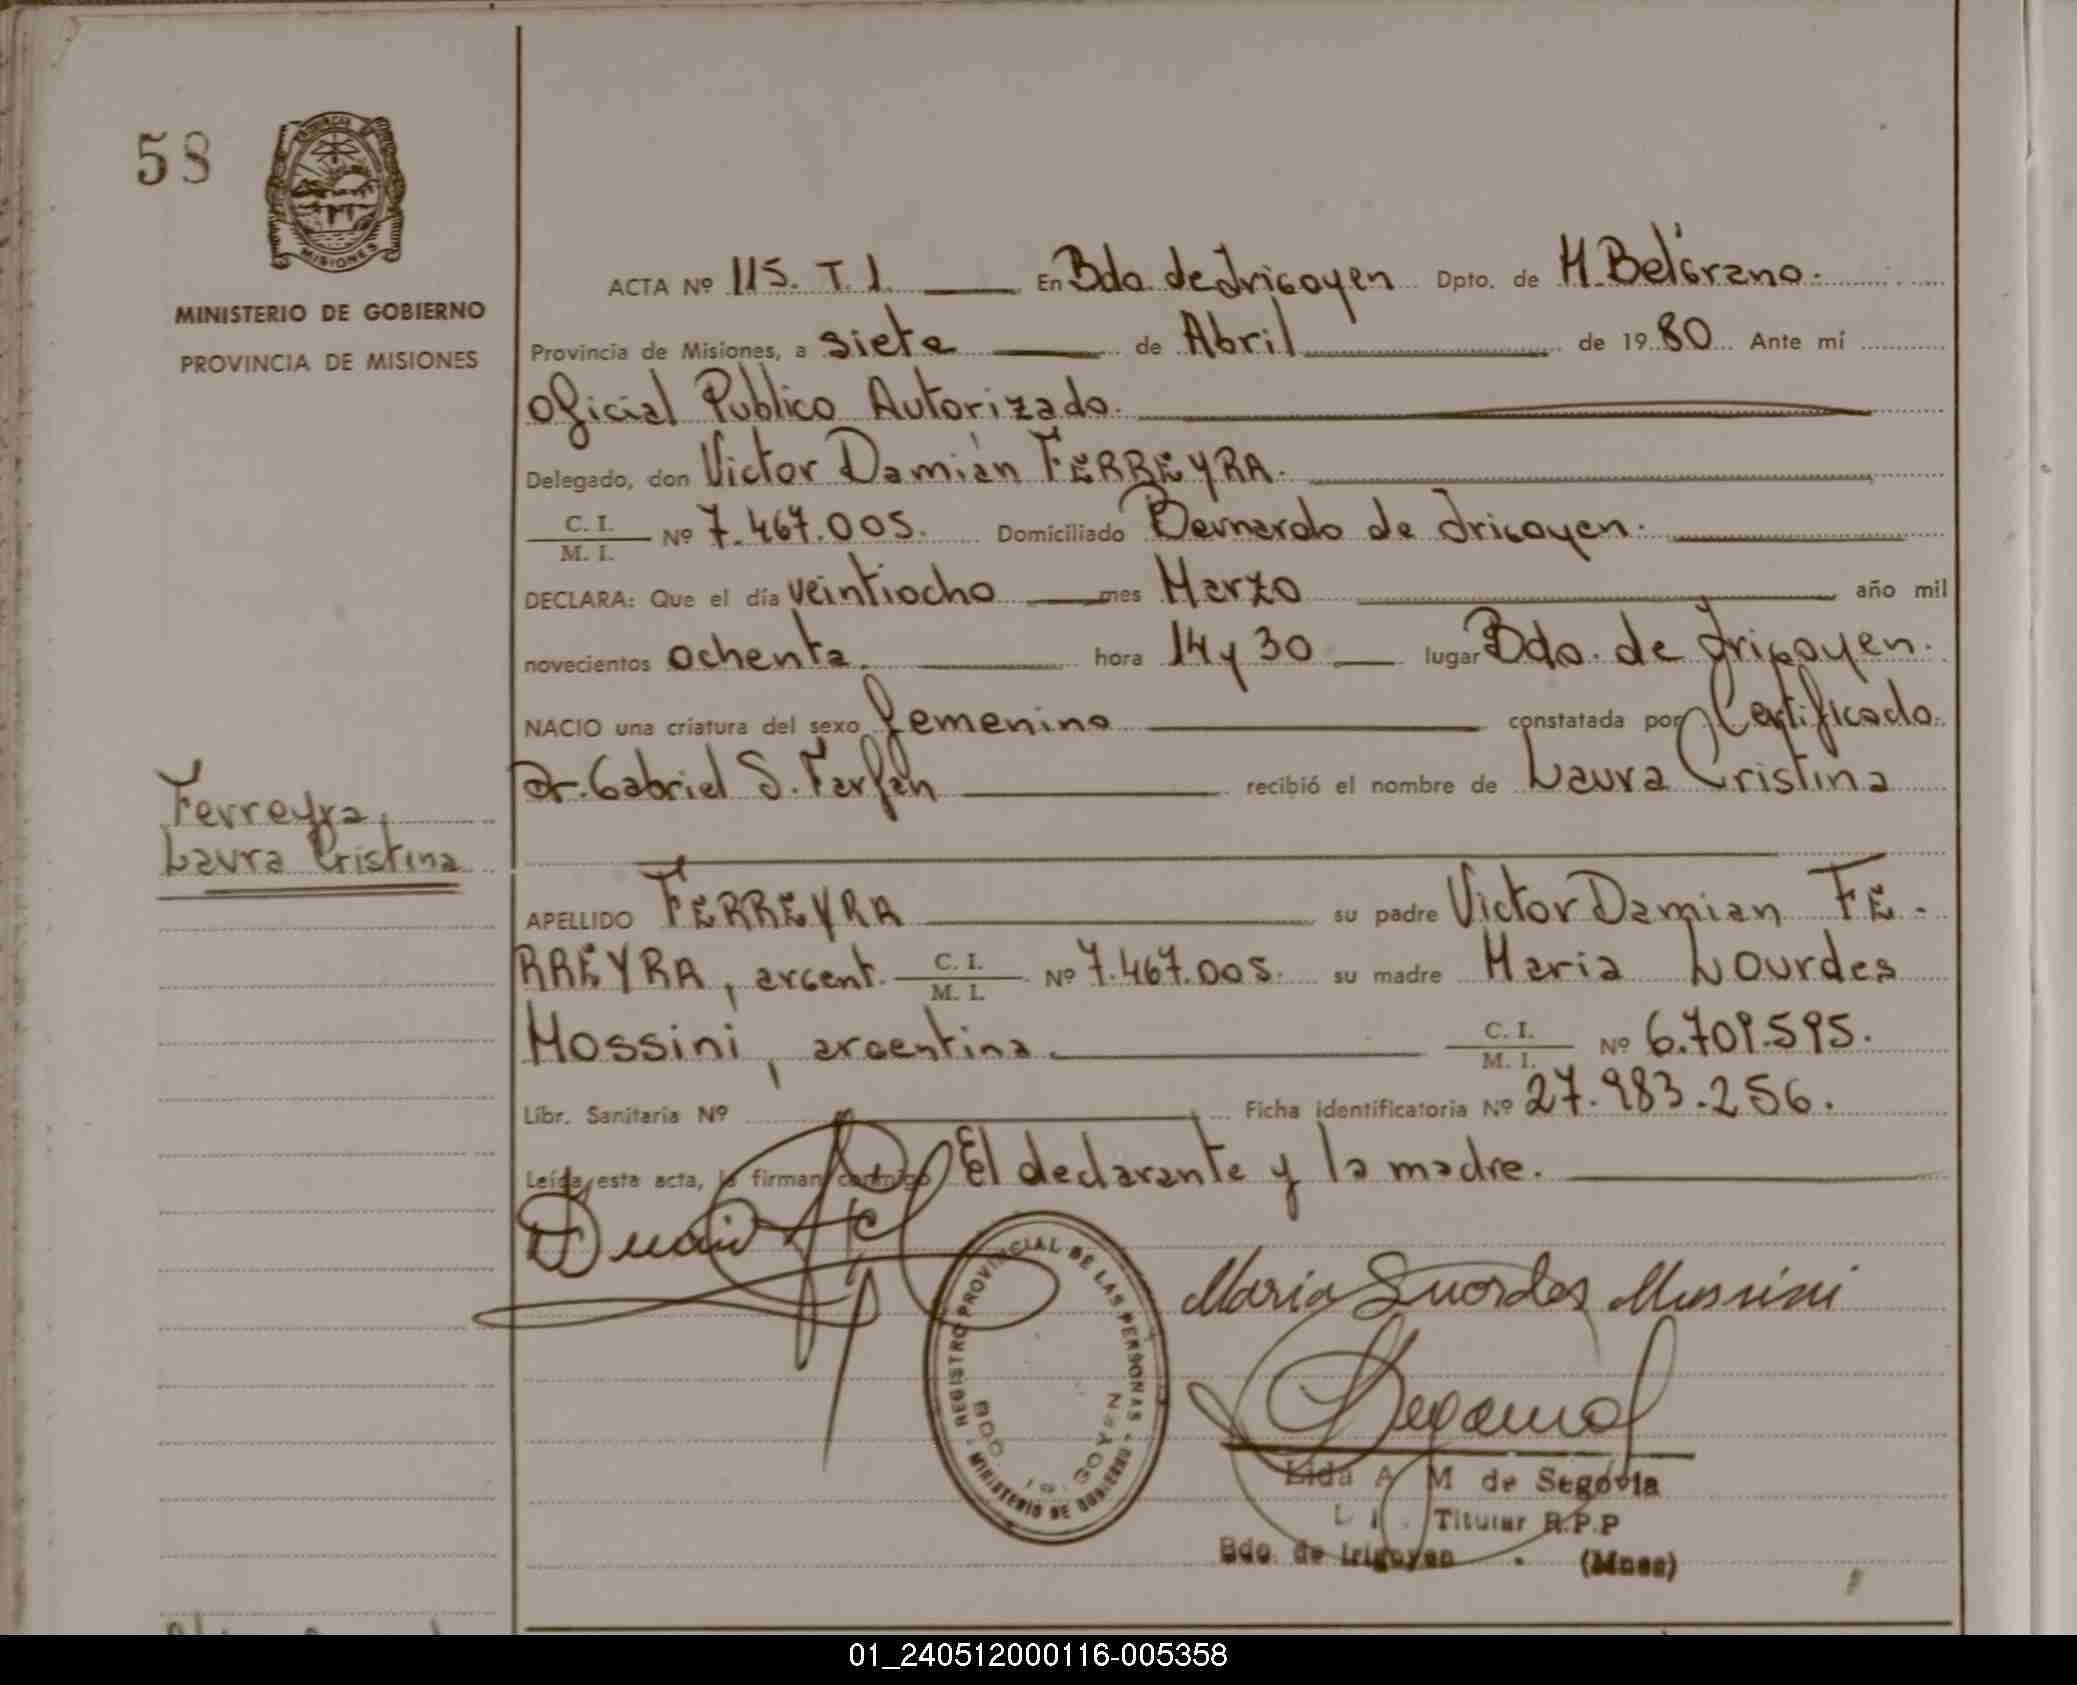 58
MISIONES
MINISTERIO DE GOBIERNO
PROVINCIA DE MISIONES
ACTA Nº 115. T. I. En Bdo. de Irigoyen Dpto. de M. Belgrano.
Provincia de Misiones, a siete de Abril de 1980 Ante mí
Oficial Publico Autorizado.
Delegado, don Victor Damián FERREYRA.
C. I.
M. I. Nº 7.467.005. Domiciliado Bernardo de Irigoyen.
DECLARA: Que el día veintiocho mes Marzo año mil
novecientos ochenta. hora 14 y 30 lugar Bdo. de Irigoyen.
NACIO una criatura del sexo femenino constatada por Certificado.
Dr. Gabriel S. Farfán recibió el nombre de Laura Cristina
Ferreyra,
Laura Cristina
APELLIDO FERREYRA su padre Victor Damian FE-
RREYRA, argent. C. I. M. I. Nº 7.467.005. su madre Maria Lourdes
Mossini, argentina C. I. M. I. Nº 6.709.595.
Libr. Sanitaria Nº Ficha identificatoria Nº 27.983.256.
Leída esta acta, la firman conmigo El declarante y la madre.
Maria Luordes Mussini
REGISTRO PROVINCIAL DE LAS PERSONAS - MINISTERIO DE GOBIERNO -
BDO. IRIGOYEN
Lida A M de Segovia
Titular R.P.P
Bdo. de Irigoyen (Mnes)
01_240512000116-005358